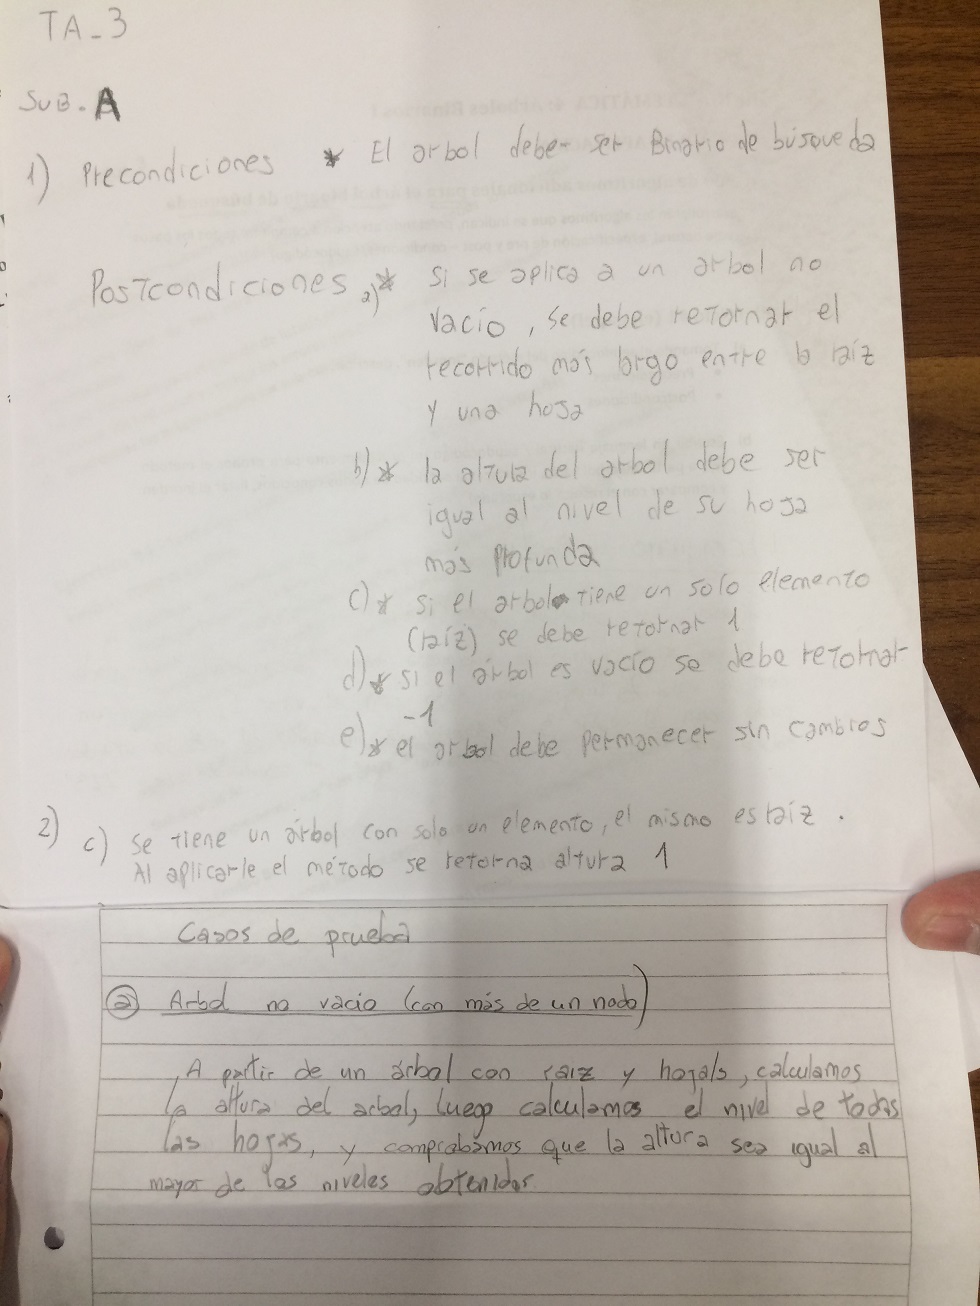 TA_3
SUB. A
1) Precondiciones * El arbol debe ser Binario de búsqueda
Postcondiciones a)* si se aplica a un arbol no
vacío, se debe retornar el
recorrido más largo entre la raíz
y una hoja
b)* la altura del arbol debe ser
igual al nivel de su hoja
más profunda
c)* si el arbol tiene un solo elemento
(raíz) se debe retornar 1
d)* si el árbol es vacío se debe retornar
-1
e)* el arbol debe permanecer sin cambios
2) c) Se tiene un árbol con solo un elemento, el mismo es raíz.
Al aplicarle el método se retorna altura 1
Casos de prueba
a) Arbol no vacio (con más de un nodo)
A partir de un árbol con raiz y hojas, calculamos
la altura del arbol, luego calculamos el nivel de todas
las hojas, y comprobamos que la altura sea igual al
mayor de los niveles obtenidos